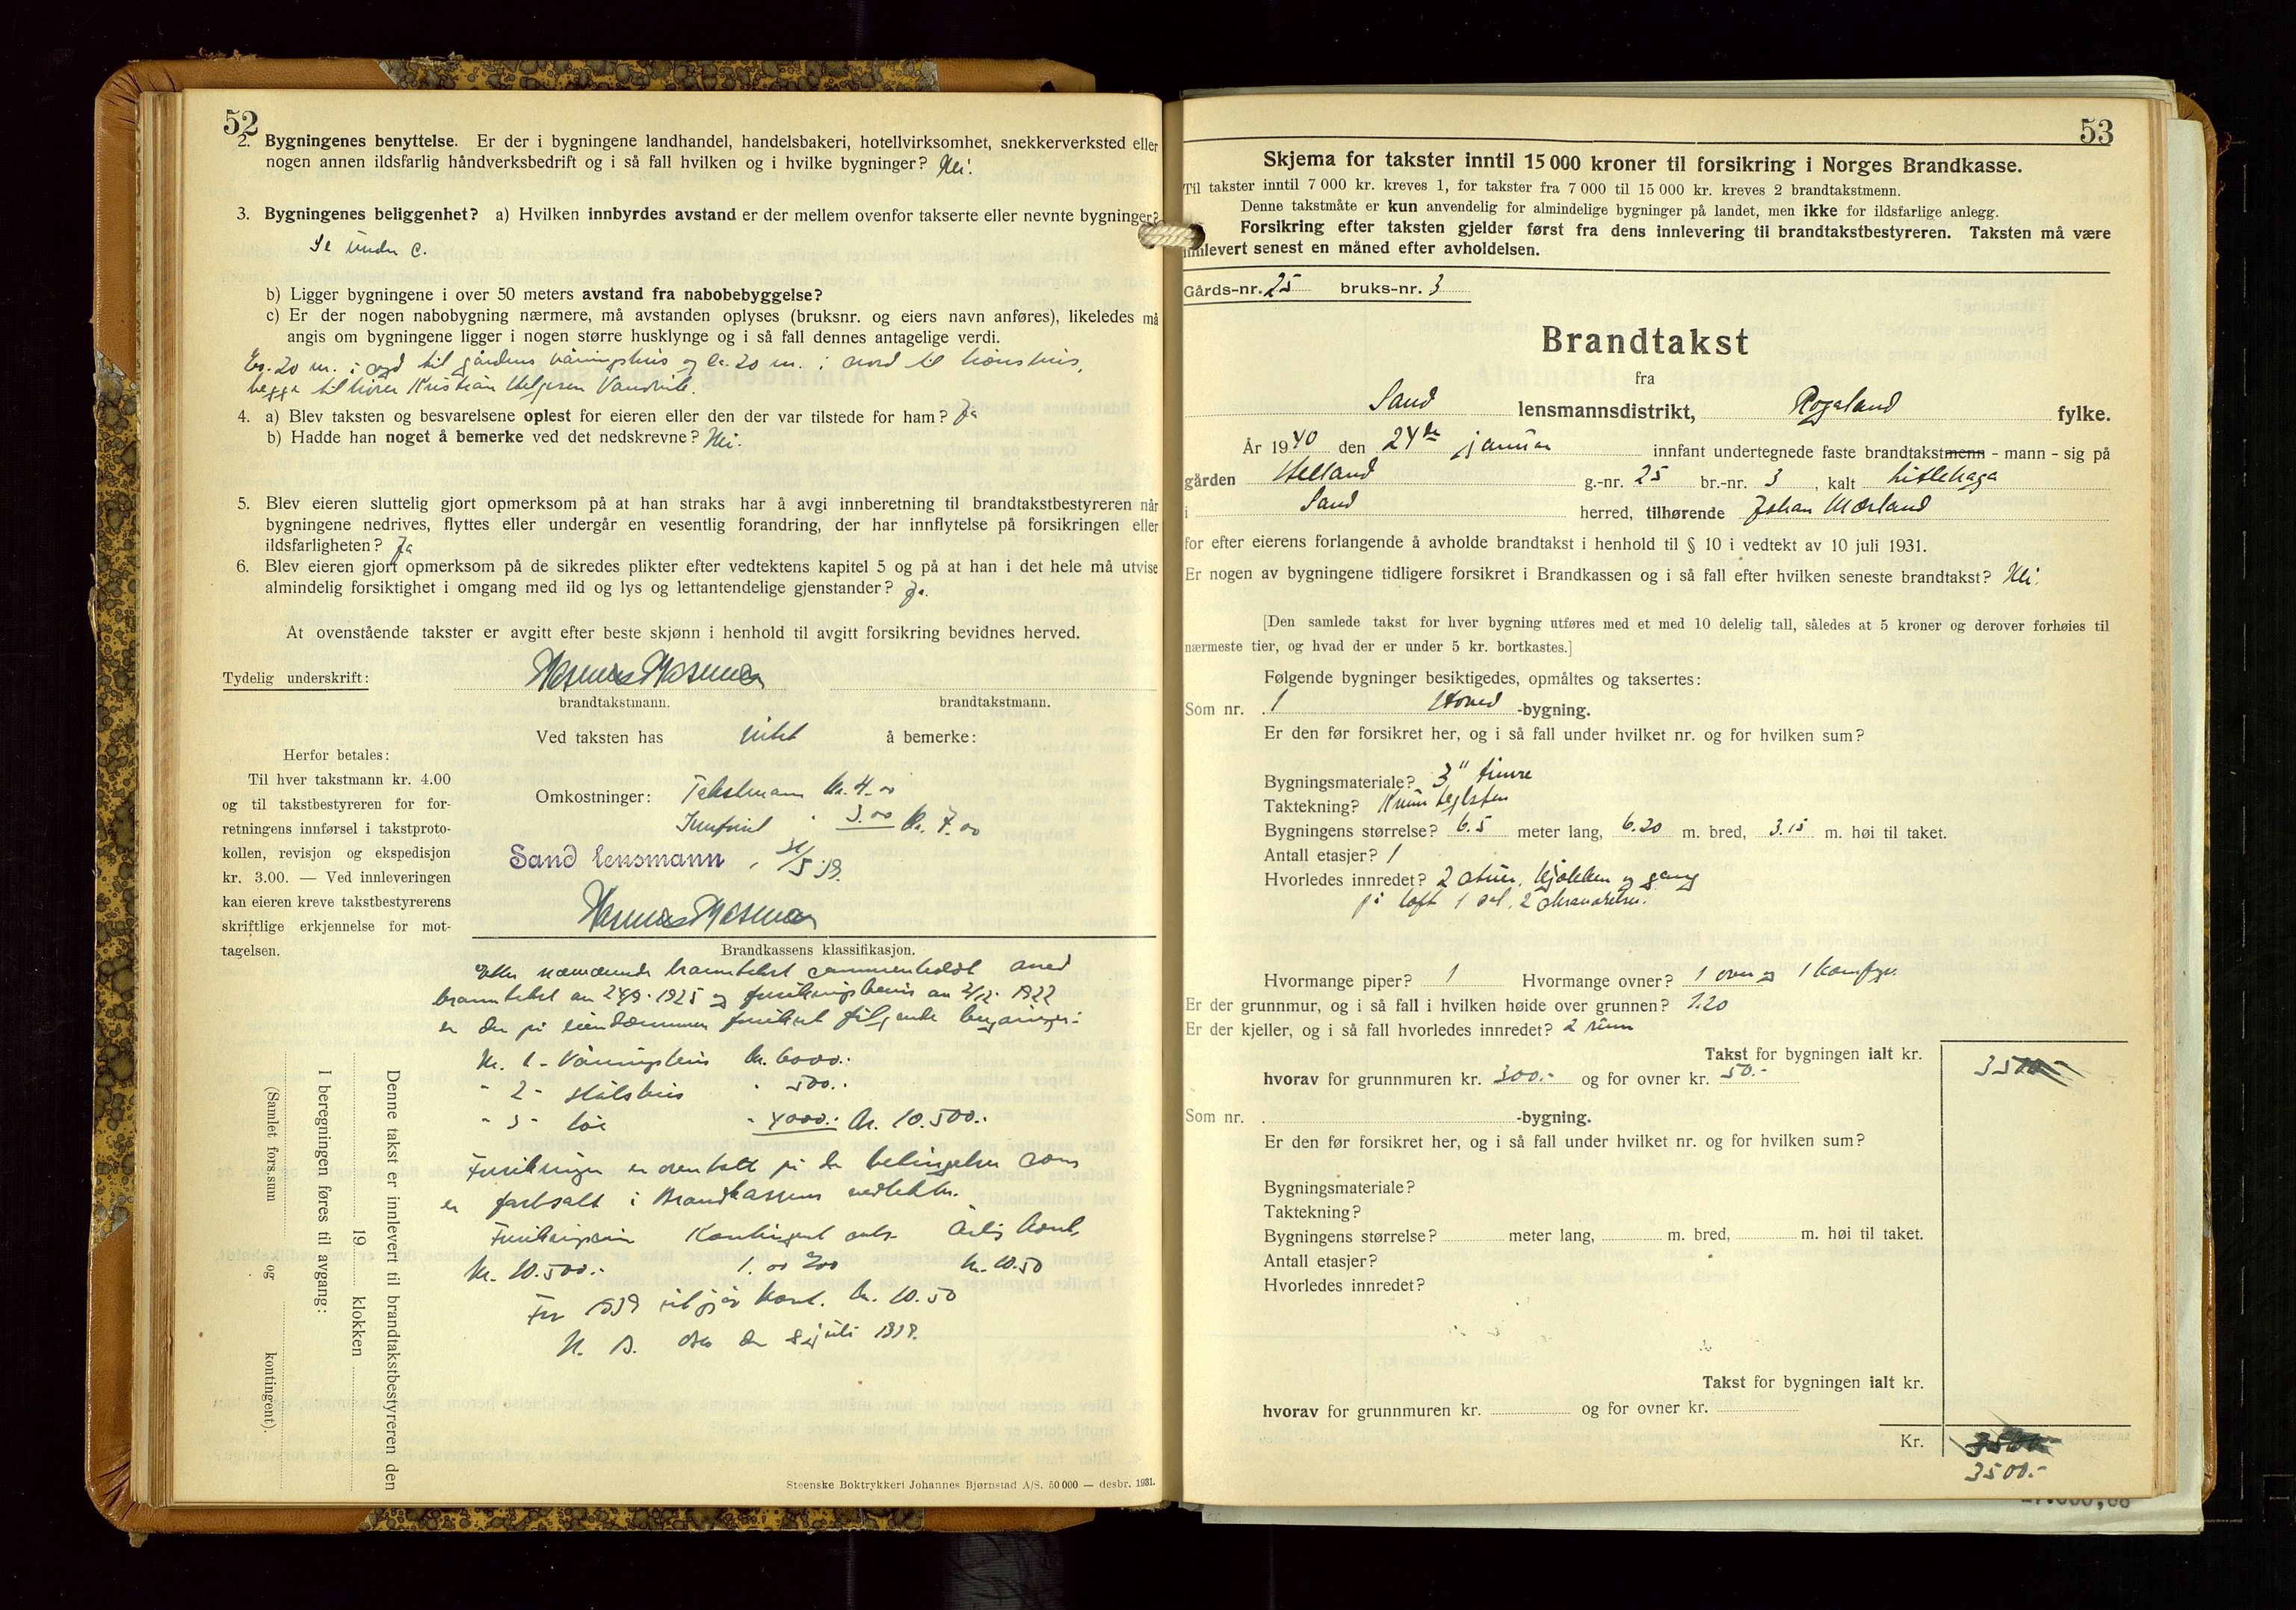 52
2. Bygningenes benyttelse. Er der i bygningene landhandel, handelsbakeri, hotellvirksomhet, snekkerverksted eller
nogen annen ildsfarlig håndverksbedrift og i så fall hvilken og i hvilke bygninger? Nei.
3. Bygningenes beliggenhet? a) Hvilken innbyrdes avstand er der mellem ovenfor takserte eller nevnte bygninger?
Se under c.
b) Ligger bygningene i over 50 meters avstand fra nabobebyggelse?
c) Er der nogen nabobygning nærmere, må avstanden oplyses (bruksnr. og eiers navn anføres), likeledes må
angis om bygningene ligger i nogen større husklynge og i så fall dennes antagelige verdi.
Ca. 20 m. i syd til gårdens våningshus og ca. 20 m. i nord til hønshus,
begge tilhører Kristian Helgesen
4. a) Blev taksten og besvarelsene oplest for eieren eller den der var tilstede for ham? Ja
b) Hadde han noget å bemerke ved det nedskrevne? Nei.
5. Blev eieren sluttelig gjort opmerksom på at han straks har å avgi innberetning til brandtakstbestyreren når
bygningene nedrives, flyttes eller undergår en vesentlig forandring, der har innflytelse på forsikringen eller
ildsfarligheten? Ja
6. Blev eieren gjort opmerksom på de sikredes plikter efter vedtektens kapitel 5 og på at han i det hele må utvise
almindelig forsiktighet i omgang med ild og lys og lettantendelige gjenstander? Ja.
At ovenstående takster er avgitt efter beste skjønn i henhold til avgitt forsikring bevidnes herved.
Tydelig underskrift:
brandtakstmann. brandtakstmann.
Ved taksten has intet å bemerke:
Herfor betales:
Til hver takstmann kr. 4.00
og til takstbestyreren for for-
retningens innførsel i takstproto-
kollen, revisjon og ekspedisjon
kr. 3.00. — Ved innleveringen
kan eieren kreve takstbestyrerens
skriftlige erkjennelse for mot-
tagelsen.
Omkostninger: Takstmann kr. 4.00
Innførsel " 3.00 kr. 7.00
Sand lensmann,
Brandkassens klassifikasjon.
Efter nærværende branntakst sammenholdt med
branntakst av 24/9 1925 og forsikringsbevis av 2/12 1922
er der på eiendommen forsikret følgende bygninger:
Nr. 1 - Våningshus kr. 6000.-
" 2 - Stølshus " 500.-
" 3 - Løe " 4000.- kr. 10.500.-
Forsikringen er overtatt på de betingelser som
er fastsatt i Brandkassens vedtekter.
Forsikringssum Kontingent Årlig kont.
kr. 10.500.- 1,00 ‰ kr. 10.50
For 1939 utgjør kont. kr. 10.50
N. B. Oslo den 8 juli 1939.
Denne takst er innlevert til brandtakstbestyreren den
19 klokken
I beregningen føres til avgang:
(Samlet fors.sum og kontingent).
Steenske Boktrykkeri Johannes Bjørnstad A/S. 50 000 — desbr. 1931.
53
Skjema for takster inntil 15 000 kroner til forsikring i Norges Brandkasse.
Til takster inntil 7 000 kr. kreves 1, for takster fra 7 000 til 15 000 kr. kreves 2 brandtakstmenn.
Denne takstmåte er kun anvendelig for almindelige bygninger på landet, men ikke for ildsfarlige anlegg.
Forsikring efter taksten gjelder først fra dens innlevering til brandtakstbestyreren. Taksten må være
innlevert senest en måned efter avholdelsen.
Gårds-nr. 25 bruks-nr. 3
Brandtakst
fra
Sand lensmannsdistrikt, Rogaland fylke.
År 1940 den 24de januar innfant undertegnede faste brandtakstmenn - mann - sig på
gården Helland g.-nr. 25 br.-nr. 3, kalt Litlehaga
i Sand herred, tilhørende Johan Mæland
for efter eierens forlangende å avholde brandtakst i henhold til § 10 i vedtekt av 10 juli 1931.
Er nogen av bygningene tidligere forsikret i Brandkassen og i så fall efter hvilken seneste brandtakst? Nei.
[Den samlede takst for hver bygning utføres med et med 10 delelig tall, således at 5 kroner og derover forhøies til
nærmeste tier, og hvad der er under 5 kr. bortkastes.]
Følgende bygninger besiktigedes, opmåltes og taksertes:
Som nr. 1 Hoved -bygning.
Er den før forsikret her, og i så fall under hvilket nr. og for hvilken sum?
Bygningsmateriale? 3" timre
Taktekning? Krum teglsten
Bygningens størrelse? 6.5 meter lang, 6.20 m. bred, 3.15 m. høi til taket.
Antall etasjer? 1
Hvorledes innredet? 2 stuer, kjøkken og gang
på loft 1 sal, 2
Hvormange piper? 1 Hvormange ovner? 1 ovn og 1 komfyr.
Er der grunnmur, og i så fall i hvilken høide over grunnen? 1.20
Er der kjeller, og i så fall hvorledes innredet? 2 rum
Takst for bygningen ialt kr. 3500.-
hvorav for grunnmuren kr. 300.- og for ovner kr. 50.-
Som nr. -bygning.
Er den før forsikret her, og i så fall under hvilket nr. og for hvilken sum?
Bygningsmateriale?
Taktekning?
Bygningens størrelse? meter lang, m. bred, m. høi til taket.
Antall etasjer?
Hvorledes innredet?
Takst for bygningen ialt kr.
hvorav for grunnmuren kr. og for ovner kr.
Kr. 3500.-
3500.-